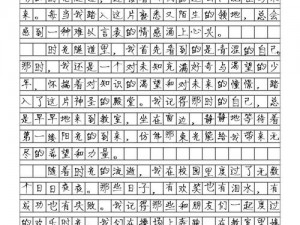 来。每当我踏入这片熟悉又陌生的领地，总会
感到一种难以言表的情感涌上心头。
时光隧道里，我首先看到的是青涩的自己。
那时，我还是一个对未知充满好奇与渴望的少
年，怀揣着对知识的渴望和对未来的憧憬，踏
入了这片神圣的殿堂。我记得那时的自己，总
是早早地来到教室，坐在窗边，静静地等待着
第一缕阳光的到来，仿佛那束光能给我带来无
尽的希望和力量。
随着时光的流逝，我在校园里度过了无数
个日日夜夜。那些日子，有欢笑也有泪水，有
成功也有失败。我记得和朋友们一起度过
的欢乐时光，我们在操场上奔跑，在教室里